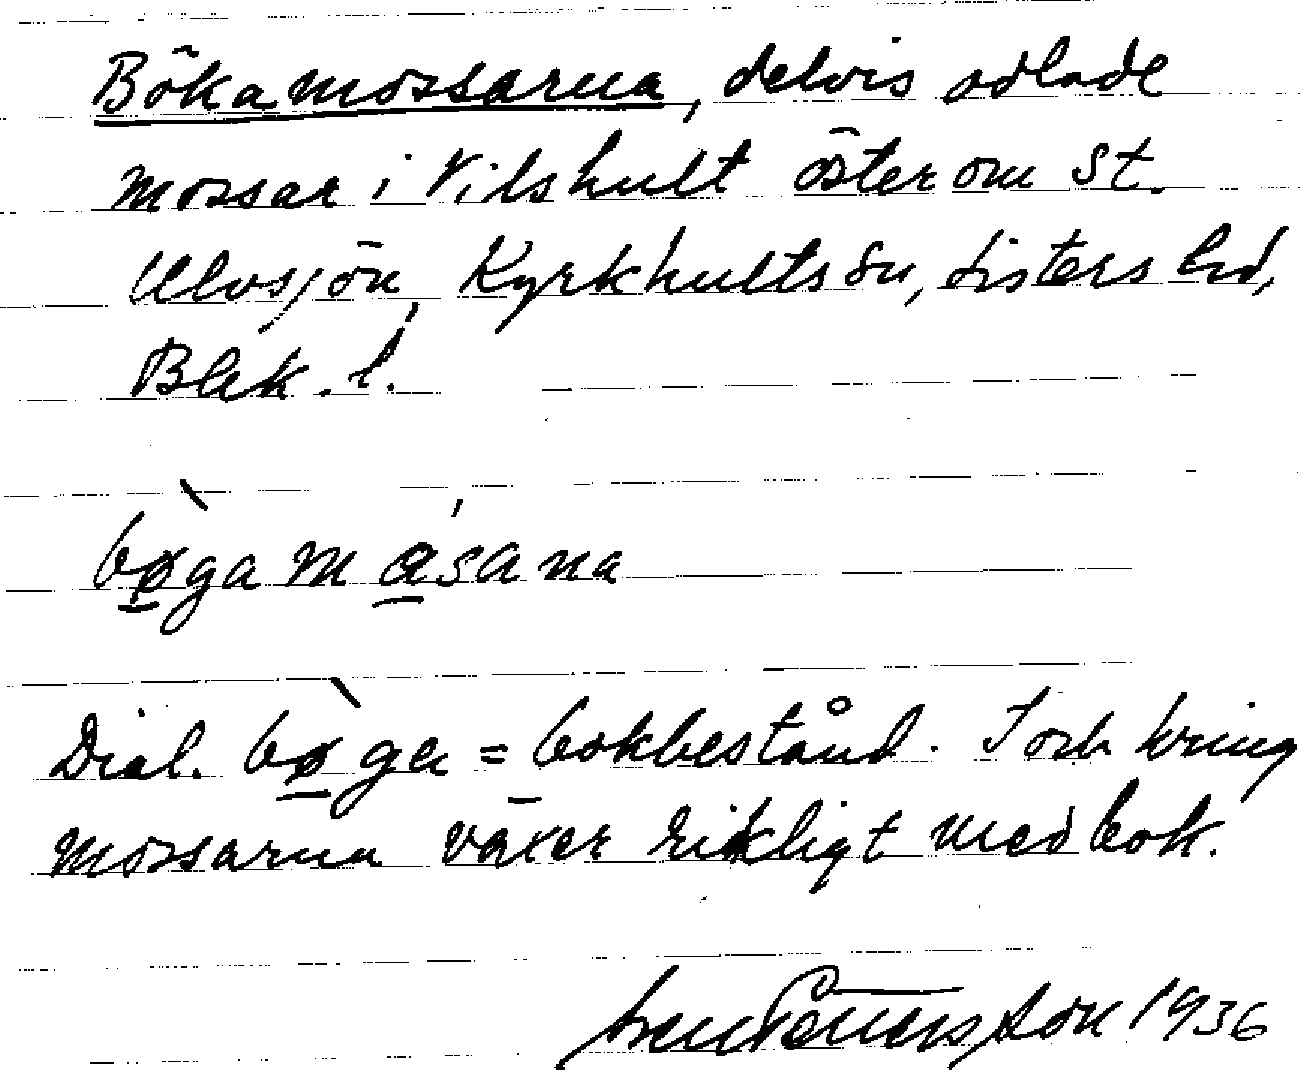 Bökamossarna, delvis odlade
mossar i Vilshult öster om St.
Ulvsjön, Kyrkhults sn, Listers hd,
Blek. l.
bø̲̀gamá̲sana
Dial. bø̲̀ga = bokbestånd. I och kring
mossarna växer rikligt med bok.
Sven Pettersson 1936